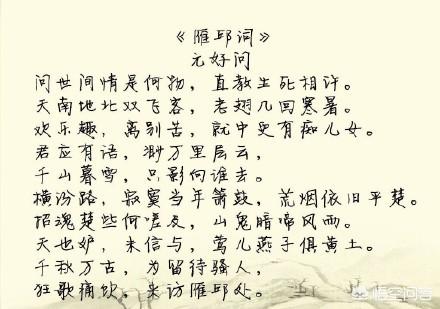 《雁邱词》
元好问
问世间情是何物，直教生死相许。
天南地北双飞客，老翅几回寒暑。
欢乐趣，离别苦，就中更有痴儿女。
君应有语，渺万里层云，
千山暮雪，只影向谁去。
横汾路，寂寞当年箫鼓，荒烟依旧平楚。
招魂楚些何嗟及，山鬼暗啼风雨。
天也妒，未信与，莺儿燕子俱黄土。
千秋万古，为留待骚人，
狂歌痛饮，来访雁邱处。
悟空问答